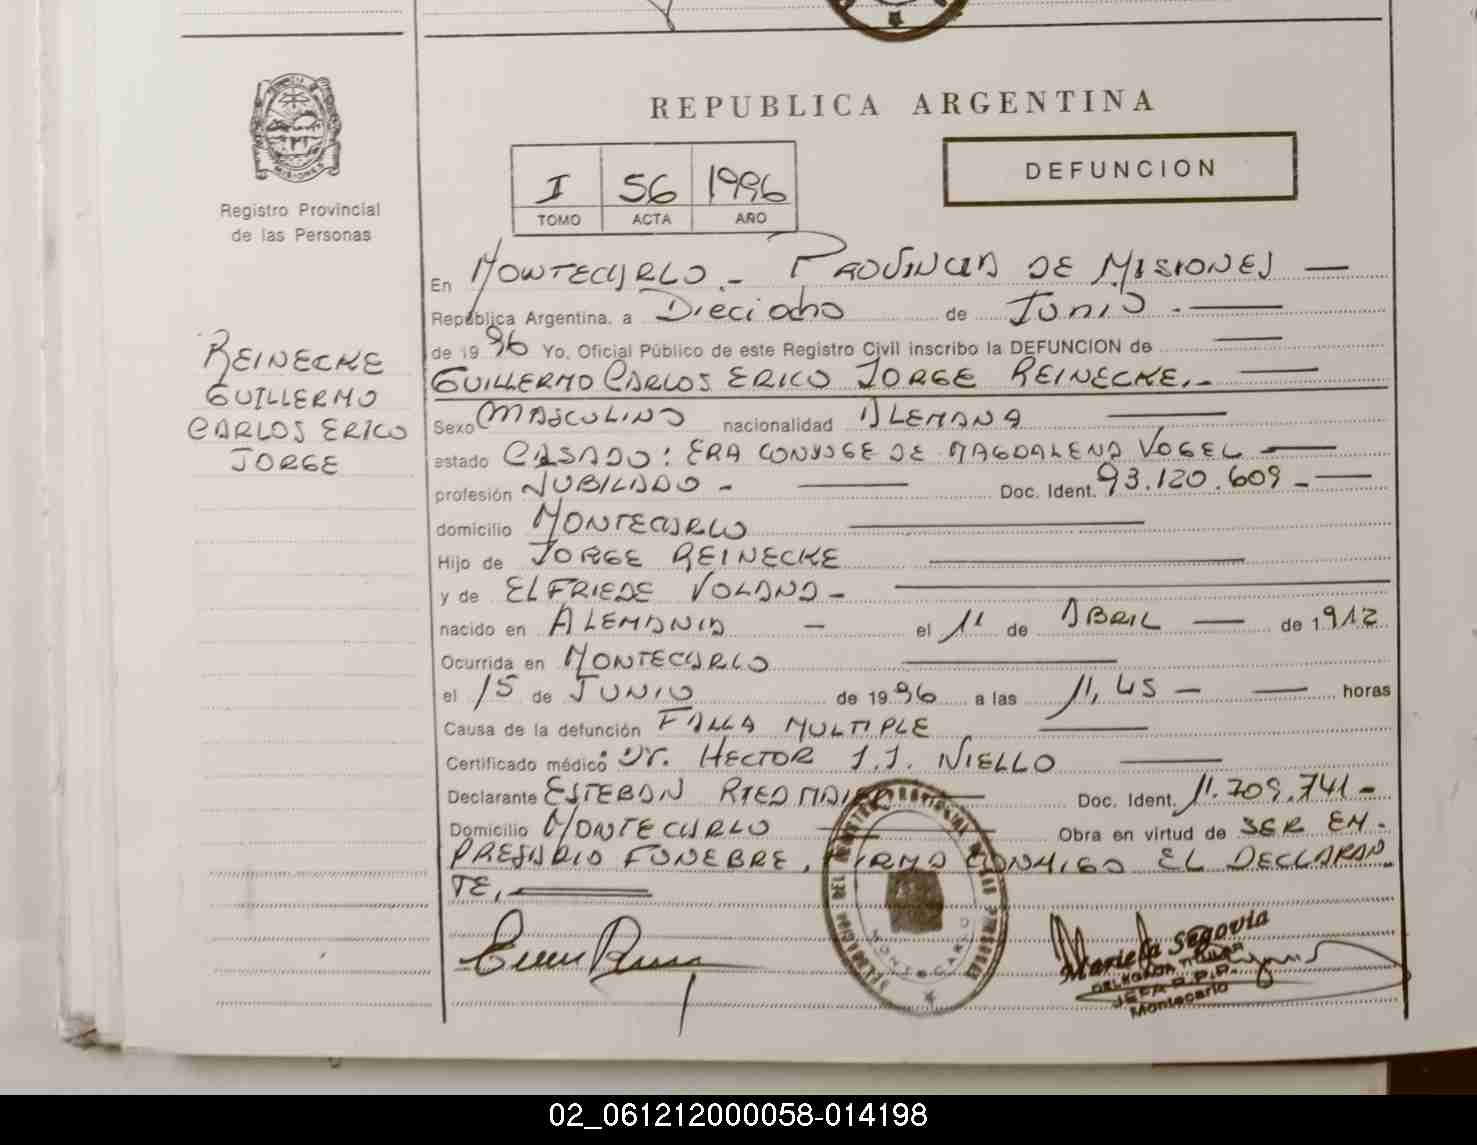 REPUBLICA ARGENTINA
DEFUNCION
I 56 1996
TOMO ACTA AÑO
MISIONES
Registro Provincial
de las Personas
REINECKE
GUILLERMO
CARLOS ERICO
JORGE
En MONTECARLO.- PROVINCIA DE MISIONES
República Argentina, a Dieciocho de JUNIO.-
de 1996 Yo, Oficial Público de este Registro Civil inscribo la DEFUNCION de
GUILLERMO CARLOS ERICO JORGE REINECKE.-
Sexo MASCULINO nacionalidad ALEMANA
estado CASADO: ERA CONYUGE DE MAGDALENA VOGEL
profesión JUBILADO - Doc. Ident. 93.120.609 -
domicilio MONTECARLO
Hijo de JORGE REINECKE
y de ELFRIEDE VOLAND -
nacido en ALEMANIA - el 11 de ABRIL de 1912
Ocurrida en MONTECARLO
el 15 de JUNIO de 1996 a las 11,45 - horas
Causa de la defunción FALLA MULTIPLE
Certificado médico Dr. HECTOR J.J. NIELLO
Declarante ESTEBAN RIEDMAIER Doc. Ident. 11.709.741 -
Domicilio MONTECARLO Obra en virtud de SER EM-
PRESARIO FUNEBRE, FIRMA CONMIGO EL DECLARAN
TE,
MONTECARLO
Mariela Segovia
DELEGADA TITULAR
JEFA R.P.P.
Montecarlo
02_061212000058-014198